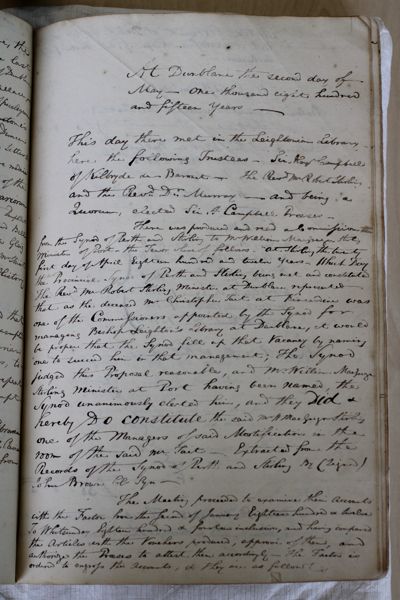 At Dunblane the second day of
May one thousand eight hundred
and fifteen years
This day there met in the Leightonian Library
here the following Trustees Sir Alexr Campbell
of Kilbryde Baronet The Revd Mr Robert Stirling
and the Revd Dr Murray and being a
Quorum, elected Sir A. Campbell Preses
There was produced and read a Commission
from the Synod of Perth and Stirling to Mr William Macgregor Stirling
Minister of Port the tenor of follows. At Stirling the twenty
first day of April Eighteen hundred and twelve Years. Which Day
the Provincial Synod of Perth and Stirling being met and constituted
The Revd Mr Robert Stirling Minister at Dunblane represented
that as the deceased Mr Christopher Tait at Kincardine was
one of the Commissioners appointed by the Synod for
managing Bishop Leighton's Library at Dunblane, it would
be proper that the Synod fill up that Vacancy by naming
one to succeed him in that management; The Synod
judged this Proposal reasonable, and Mr William Macgregor
Stirling Minister at Port having been named, the
Synod unanimously elected him, and they Did &
hereby Do constitute the said Mr W MacGregor Stirling
one of the Managers of said Mortification in the
room of the said Mr Tait Extracted from the
Records of the Synod of Perth and Stirling By (signed)
John Brown Cl. Syn
The Meeting proceeded to examine the Accounts
with the Factor from the period of January Eighteen hundred & twelve
To Whitsunday Eighteen hundred & fourteen inclusive, and having compared
the Articles with the Vouchers produced, approve of them, and
authorize the Preses to attest them accordingly The Factor is
ordered to engross the Accounts, & they are as follows